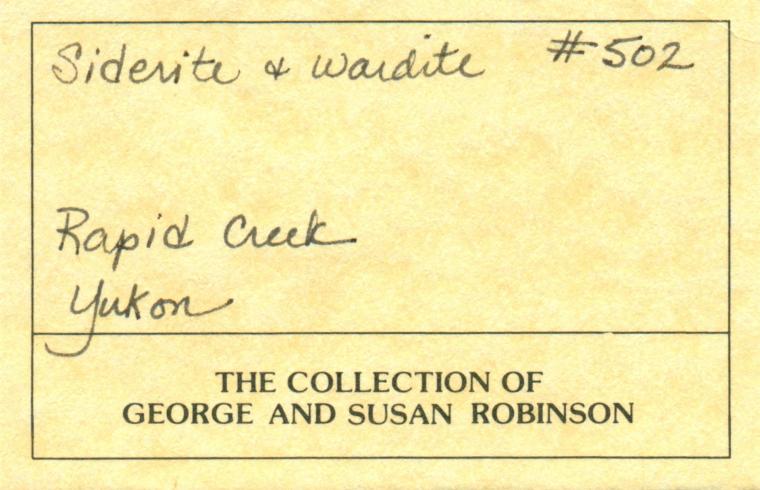 Siderite & Wardite #502
Rapid Creek
Yukon
THE COLLECTION OF
GEORGE AND SUSAN ROBINSON